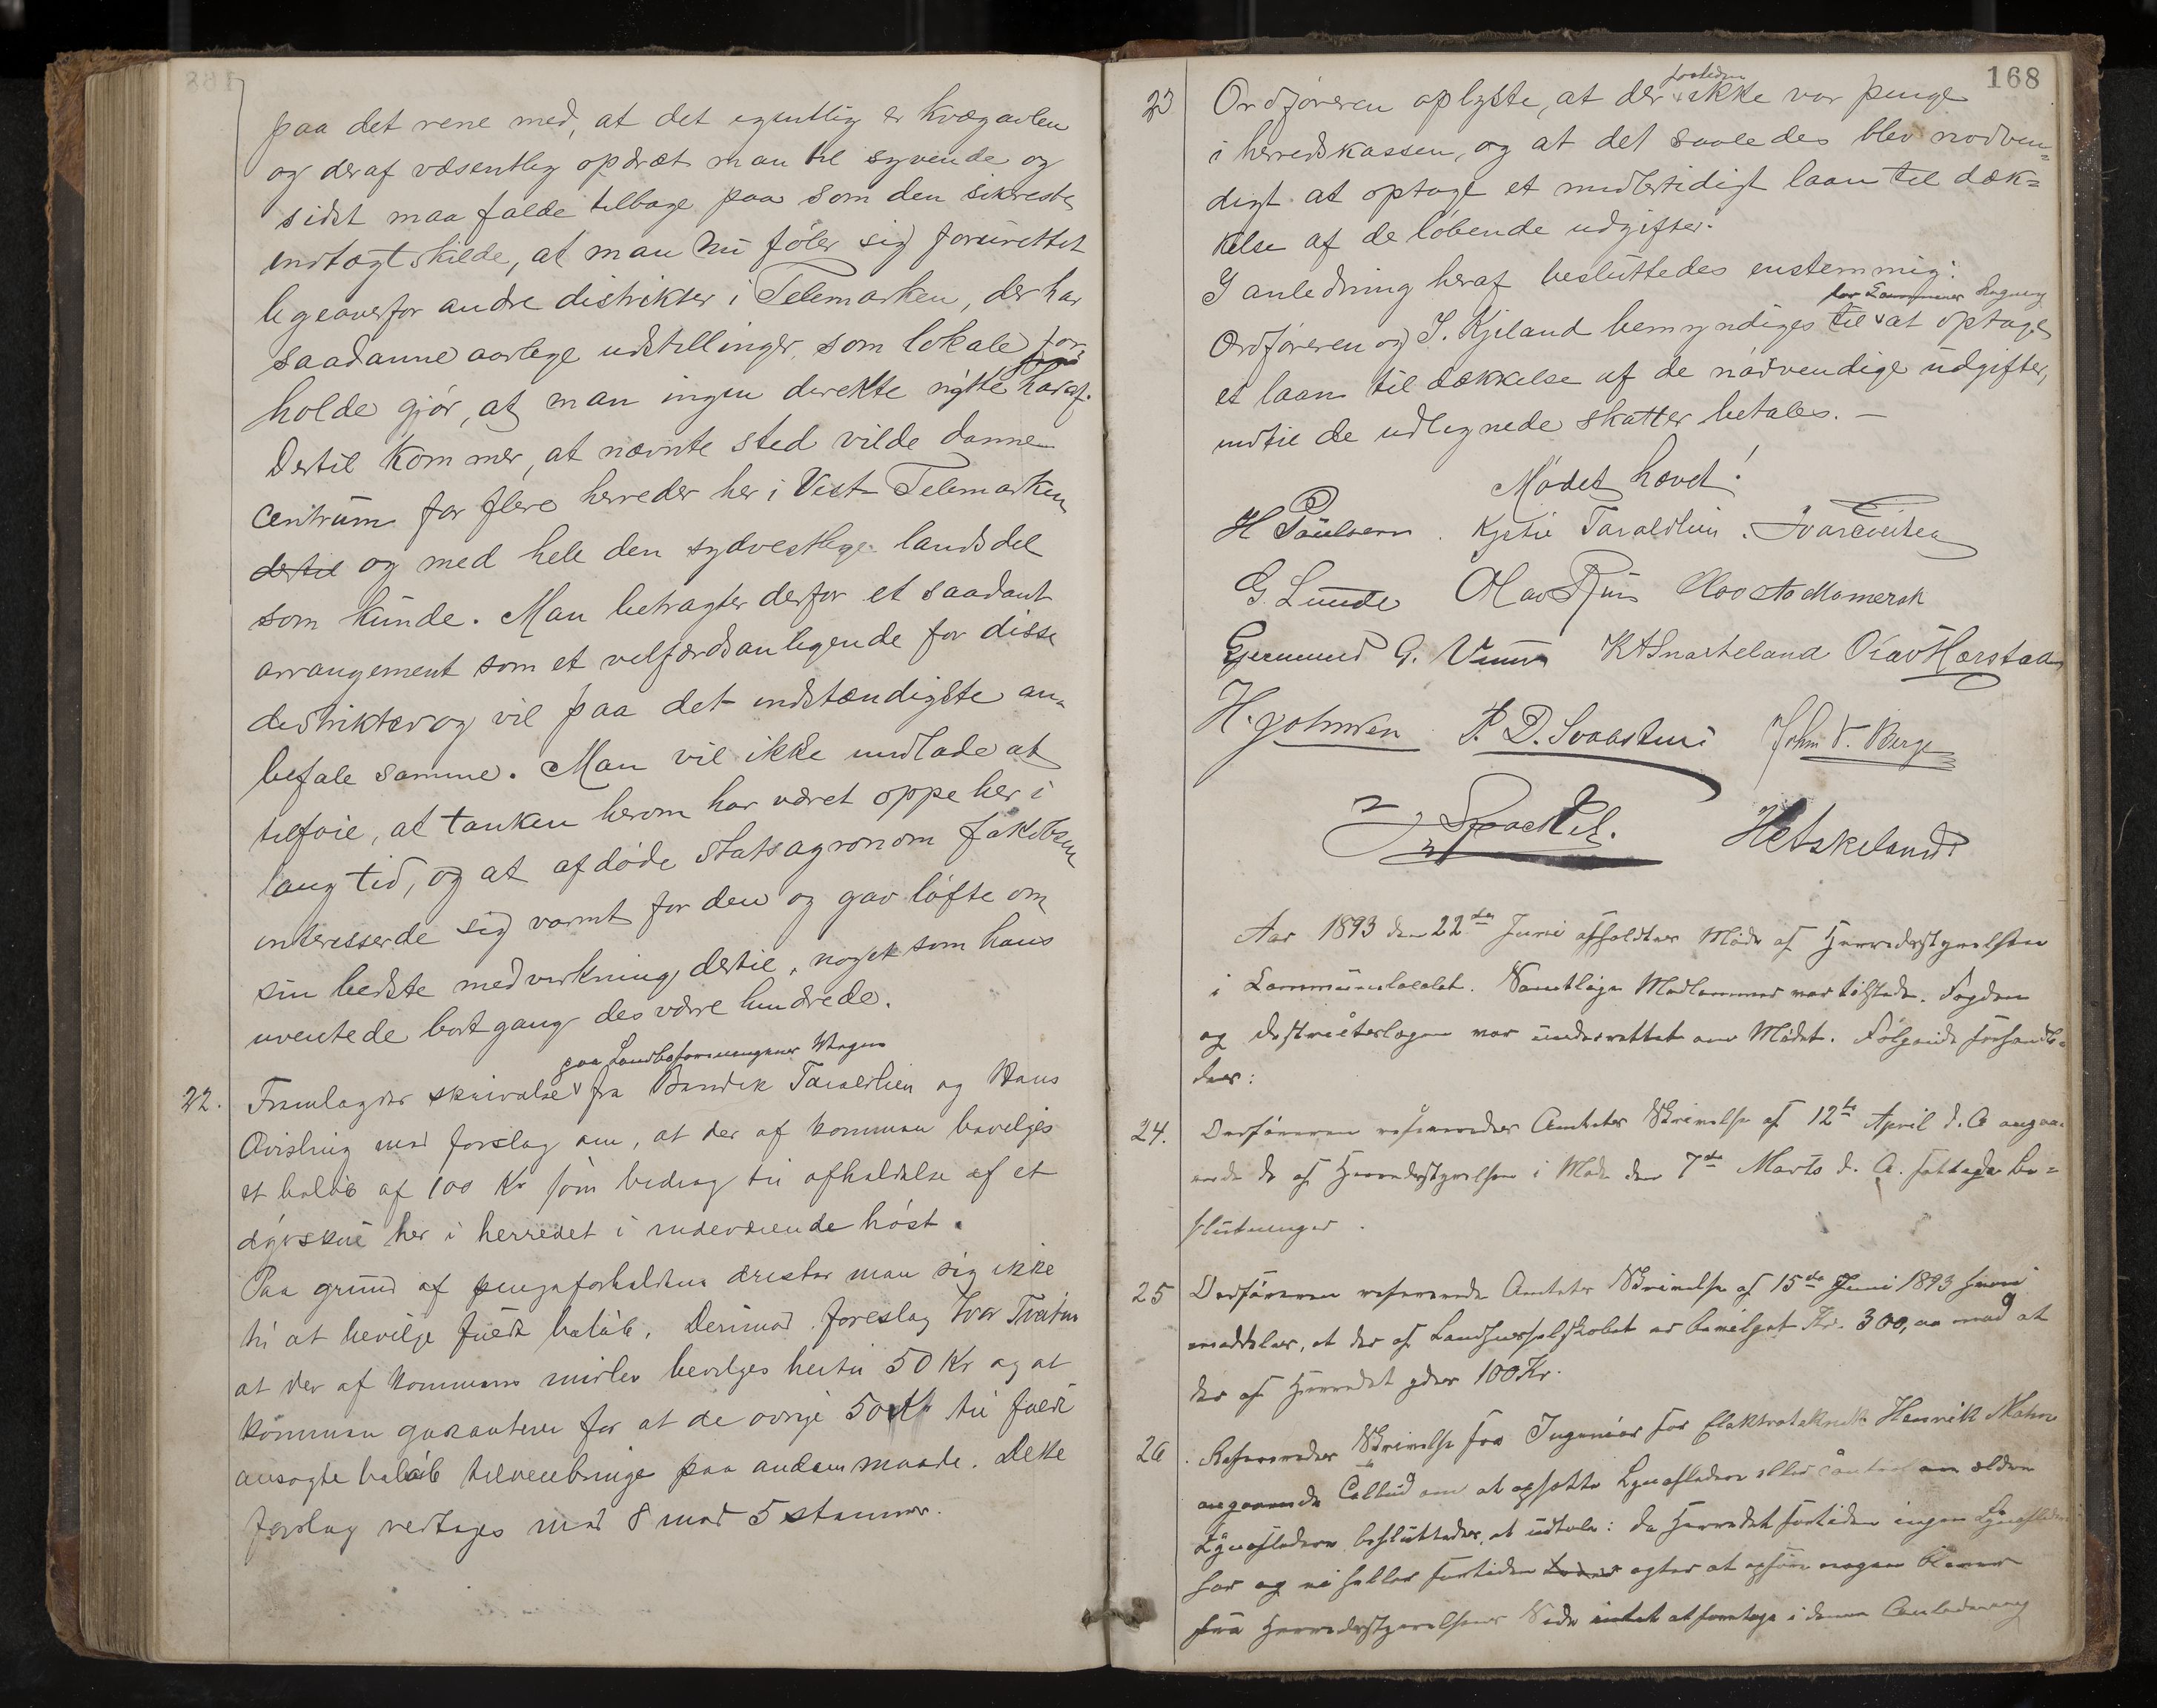 paa det rene med, at det egentlig er kvægavlen
og deraf væsentlig opdræt man til syvende og
sidst maa falde tilbage paa som den sikreste
indtægtskilde, at man nu føler sig forurettet
ligeoverfor andre distrikter i Telemarken, der har
saadanne aarlige udstillinger, som lokale for-
holde gjør, at man ingen direkte nytte har af.
Dertil kommer, at nævnte sted vilde danne
centrum for flere herreder her i Vest-Telemarken
dertil og med hele den sydvestlige landsdel
som kunde. Man betragter derfor et saadant
arrangement som et velfærdsanligende for disse
distrikter og vil paa det indstændigste an-
befale samme. Man vil ikke undlade at
tilføie, at tanken herom har været oppe her i
lang tid, og at afdøde statsagronom Jakobsen
interesserde sig varmt for den og gav løfte om
sin bedste medvirkning dertil, noget som hans
uventede bortgang des værre hindrede.
paa Landboforeningens Vegne
22. Fremlagdes skrivelse fra Bendik Taraldlien og Hans
Qvisling med forslag om, at der af kommunen bevilges
et beløb af 100 Kr som bidrag til afholdelse af et
dyrskue her i herredet i indeværende høst.
Paa grund af pengeforholdene drister man sig ikke
til at bevilge fuldt beløb. Derimod foreslog Ivar Tveiten
at der af kommunen bevilges hertil 50 Kr og at
kommunen garanterer for at de øvrige 50 Kr til fuldt
ansøgte beløb tilveiebringes paa anden maade. Dette
forslag vedtages med 8 mod 5 stemmer.
168
fortiden
23 Ordføreren oplyste, at der ikke var penge
i herredskassen, og at det saaledes blev nødven=
digt at optage et midlertidigt laan til dæk=
kelse af de løbende udgifter.
I anledning heraf besluttedes enstemmig:
for Kommunens Regning
Ordføreren og S. Kjeland bemyndiges til at optage
et laan til dækkelse af de nødvendige udgifter,
indtil de udlignede skatter betales. —
Mødet hævet!
H Paulsen. Kjetil Taraldlien. Ivar Tveiten
G. Lunde Olav
Gjermund G. K A Snarteland Olav Harstad
H. Johnsen P. D. John V. Berge
H Askeland
Aar 1893 den 22de Juni afholdtes Møde af Herredsstyrelsen
i Kommunelocalet. Samtlige Medlemmer var tilstede. Fogden
og Distriktslægen var underrettet om Mødet. Følgende forhandle-
des:
24. Ordføreren refereredes Amtets Skrivelse af 12te April d. A. angaa-
ende de af Herredsstyrelsen i Møde den 7de Marts d. A. fattede Be=
slutninger.
25 Ordføreren refererede Amtets Skrivelse af 15de Juni 1893 hvori
meddeles, at der af Landhusselskabet er bevilget Kr. 300,00 mod at
der af Herredet ydes 100 Kr.
26. Refereredes Skrivelse fra Ingeniør for Elektroteknik Henrik
angaaende Tilbud om at opsætte Lynafledere eller ældre
Lynafledere besluttedes at udtale: da Herredet fortiden ingen Lynafledere
har og ei heller fortiden agter at opføre nogen bliver
fra Herredsstyrelsens Side intet at foretage i denne Anledning